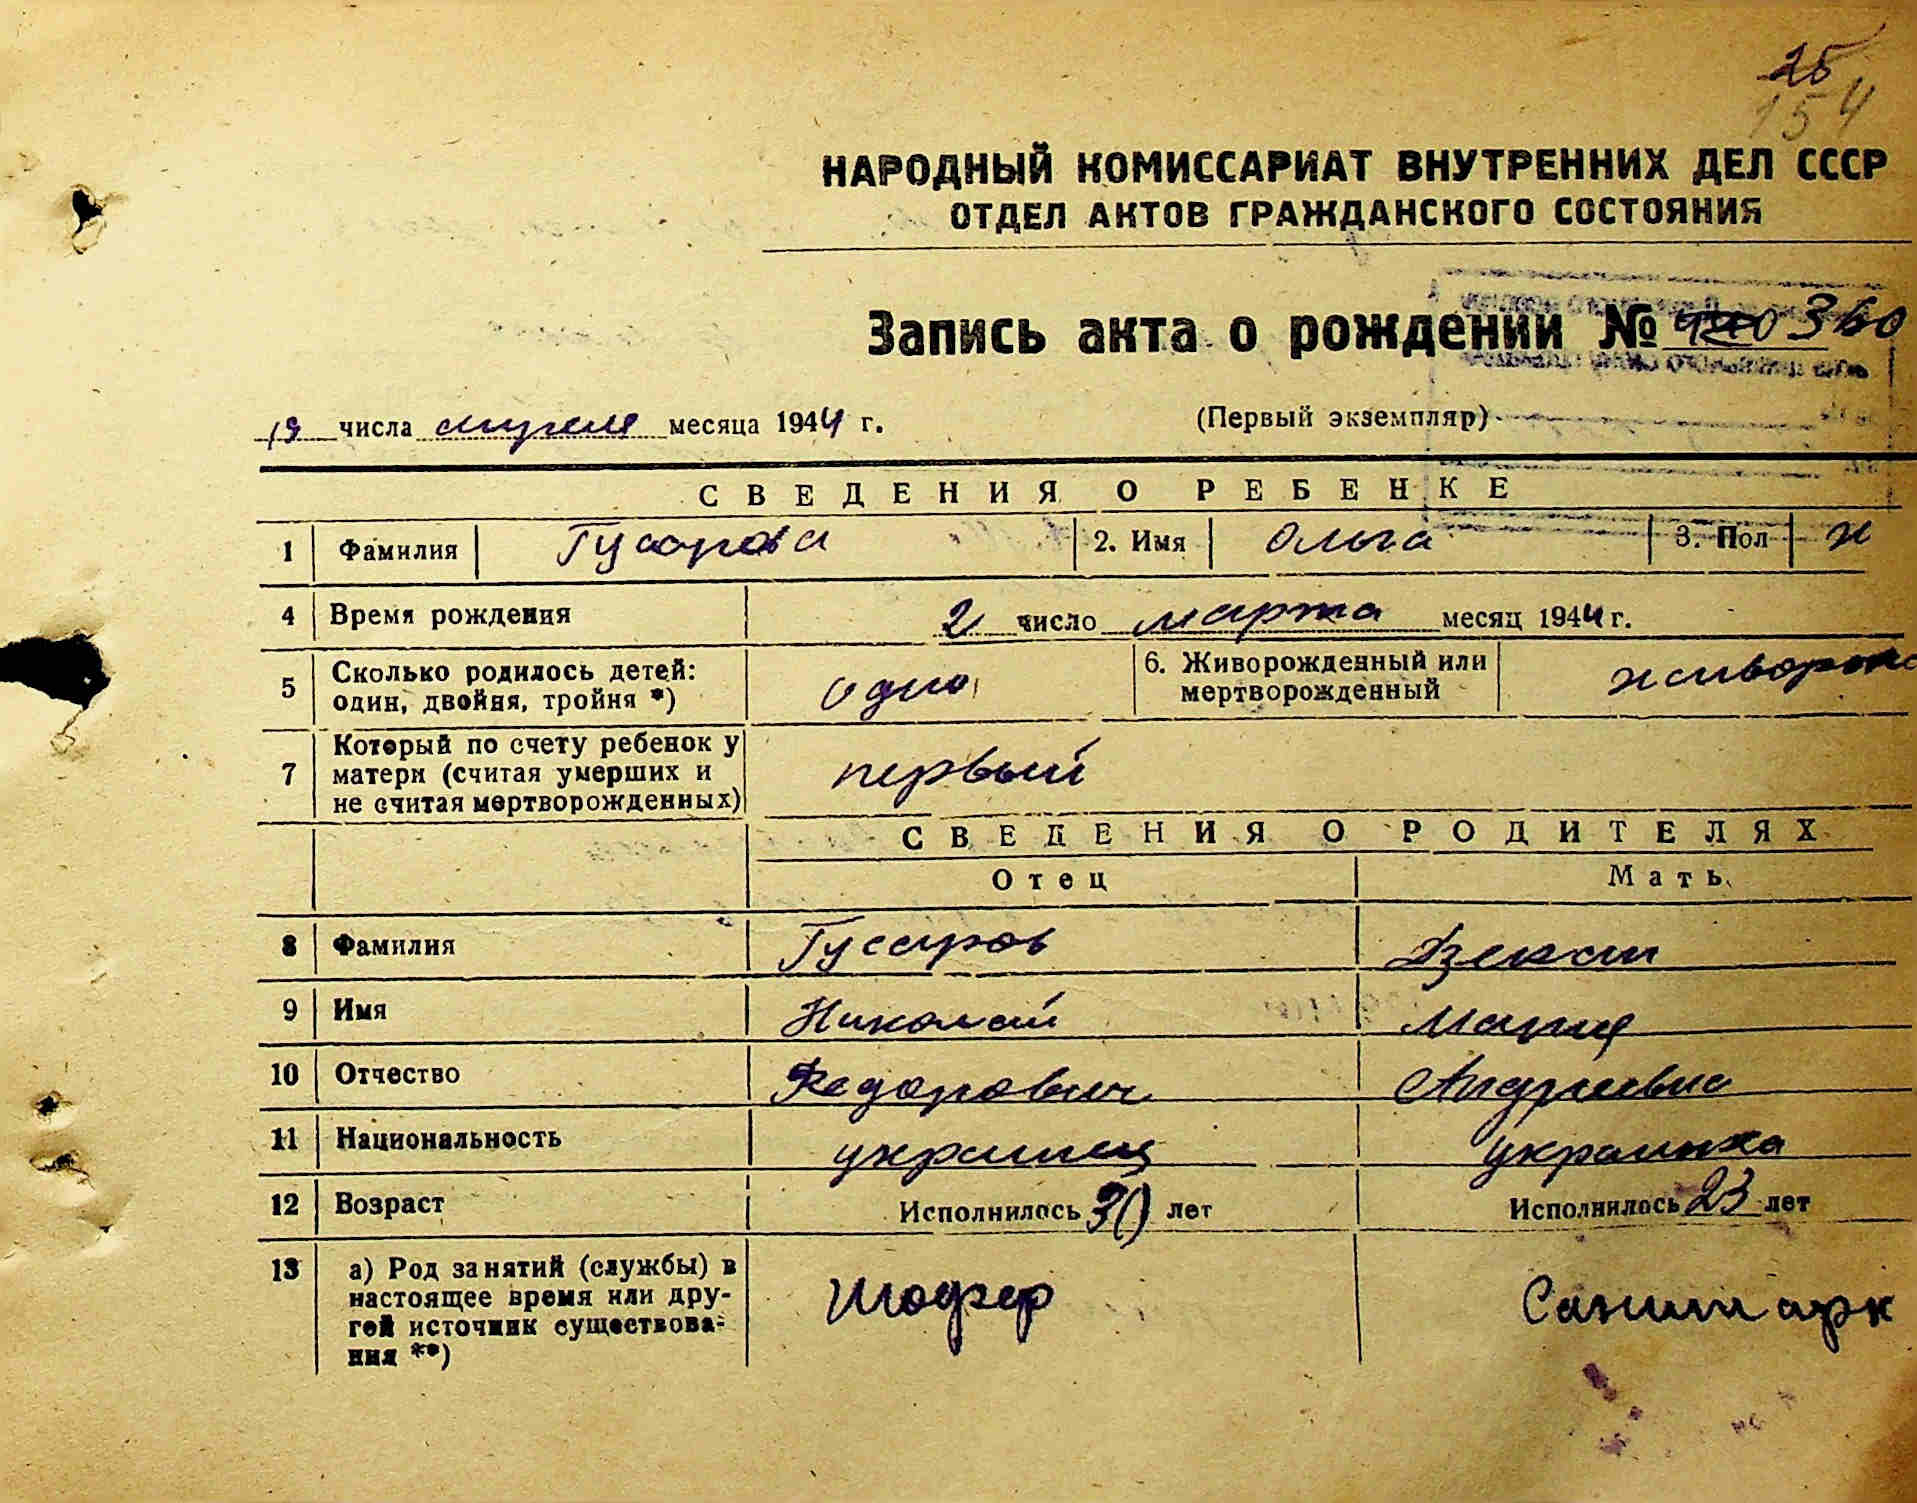 25
154
НАРОДНЫЙ КОМИССАРИАТ ВНУТРЕННИХ ДЕЛ СССР
ОТДЕЛ АКТОВ ГРАЖДАНСКОГО СОСТОЯНИЯ
Запись акта о рождении № 360
19 числа апреля месяца 1944 г. (Первый экземпляр)
СВЕДЕНИЯ О РЕБЕНКЕ
1 Фамилия Гусарова 2. Имя Ольга 3. Пол ж
4 Время рождения 2 число марта месяц 1944 г.
5 Сколько родилось детей: один, двойня, тройня *) одно 6. Живорожденный или мертворожденный живорож
7 Который по счету ребенок у матери (считая умерших и не считая мертворожденных) первый
СВЕДЕНИЯ О РОДИТЕЛЯХ
Отец Мать
8 Фамилия Гусаров
9 Имя Николай Мария
10 Отчество Федорович Андреевна
11 Национальность украинец украинка
12 Возраст Исполнилось 30 лет Исполнилось 23 лет
13 а) Род занятий (службы) в настоящее время или другой источник существования **) шофер Санитарк